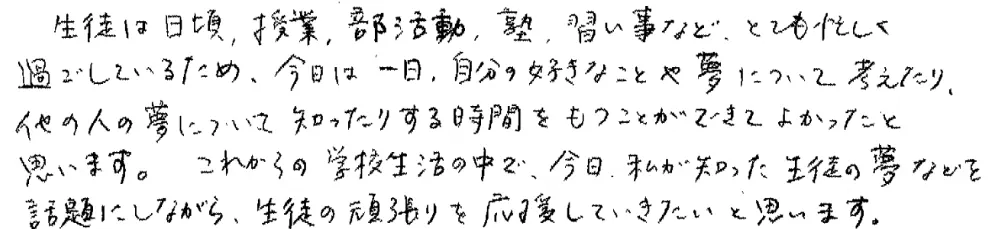 生徒は日頃、授業、部活動、塾、習い事など、とても忙しく
過ごしているため、今日は一日、自分の好きなことや夢について考えたり、
他の人の夢について知ったりする時間をもつことができてよかったと
思います。これからの学校生活の中で、今日、私が知った生徒の夢などを
話題にしながら、生徒の頑張りを応援していきたいと思います。